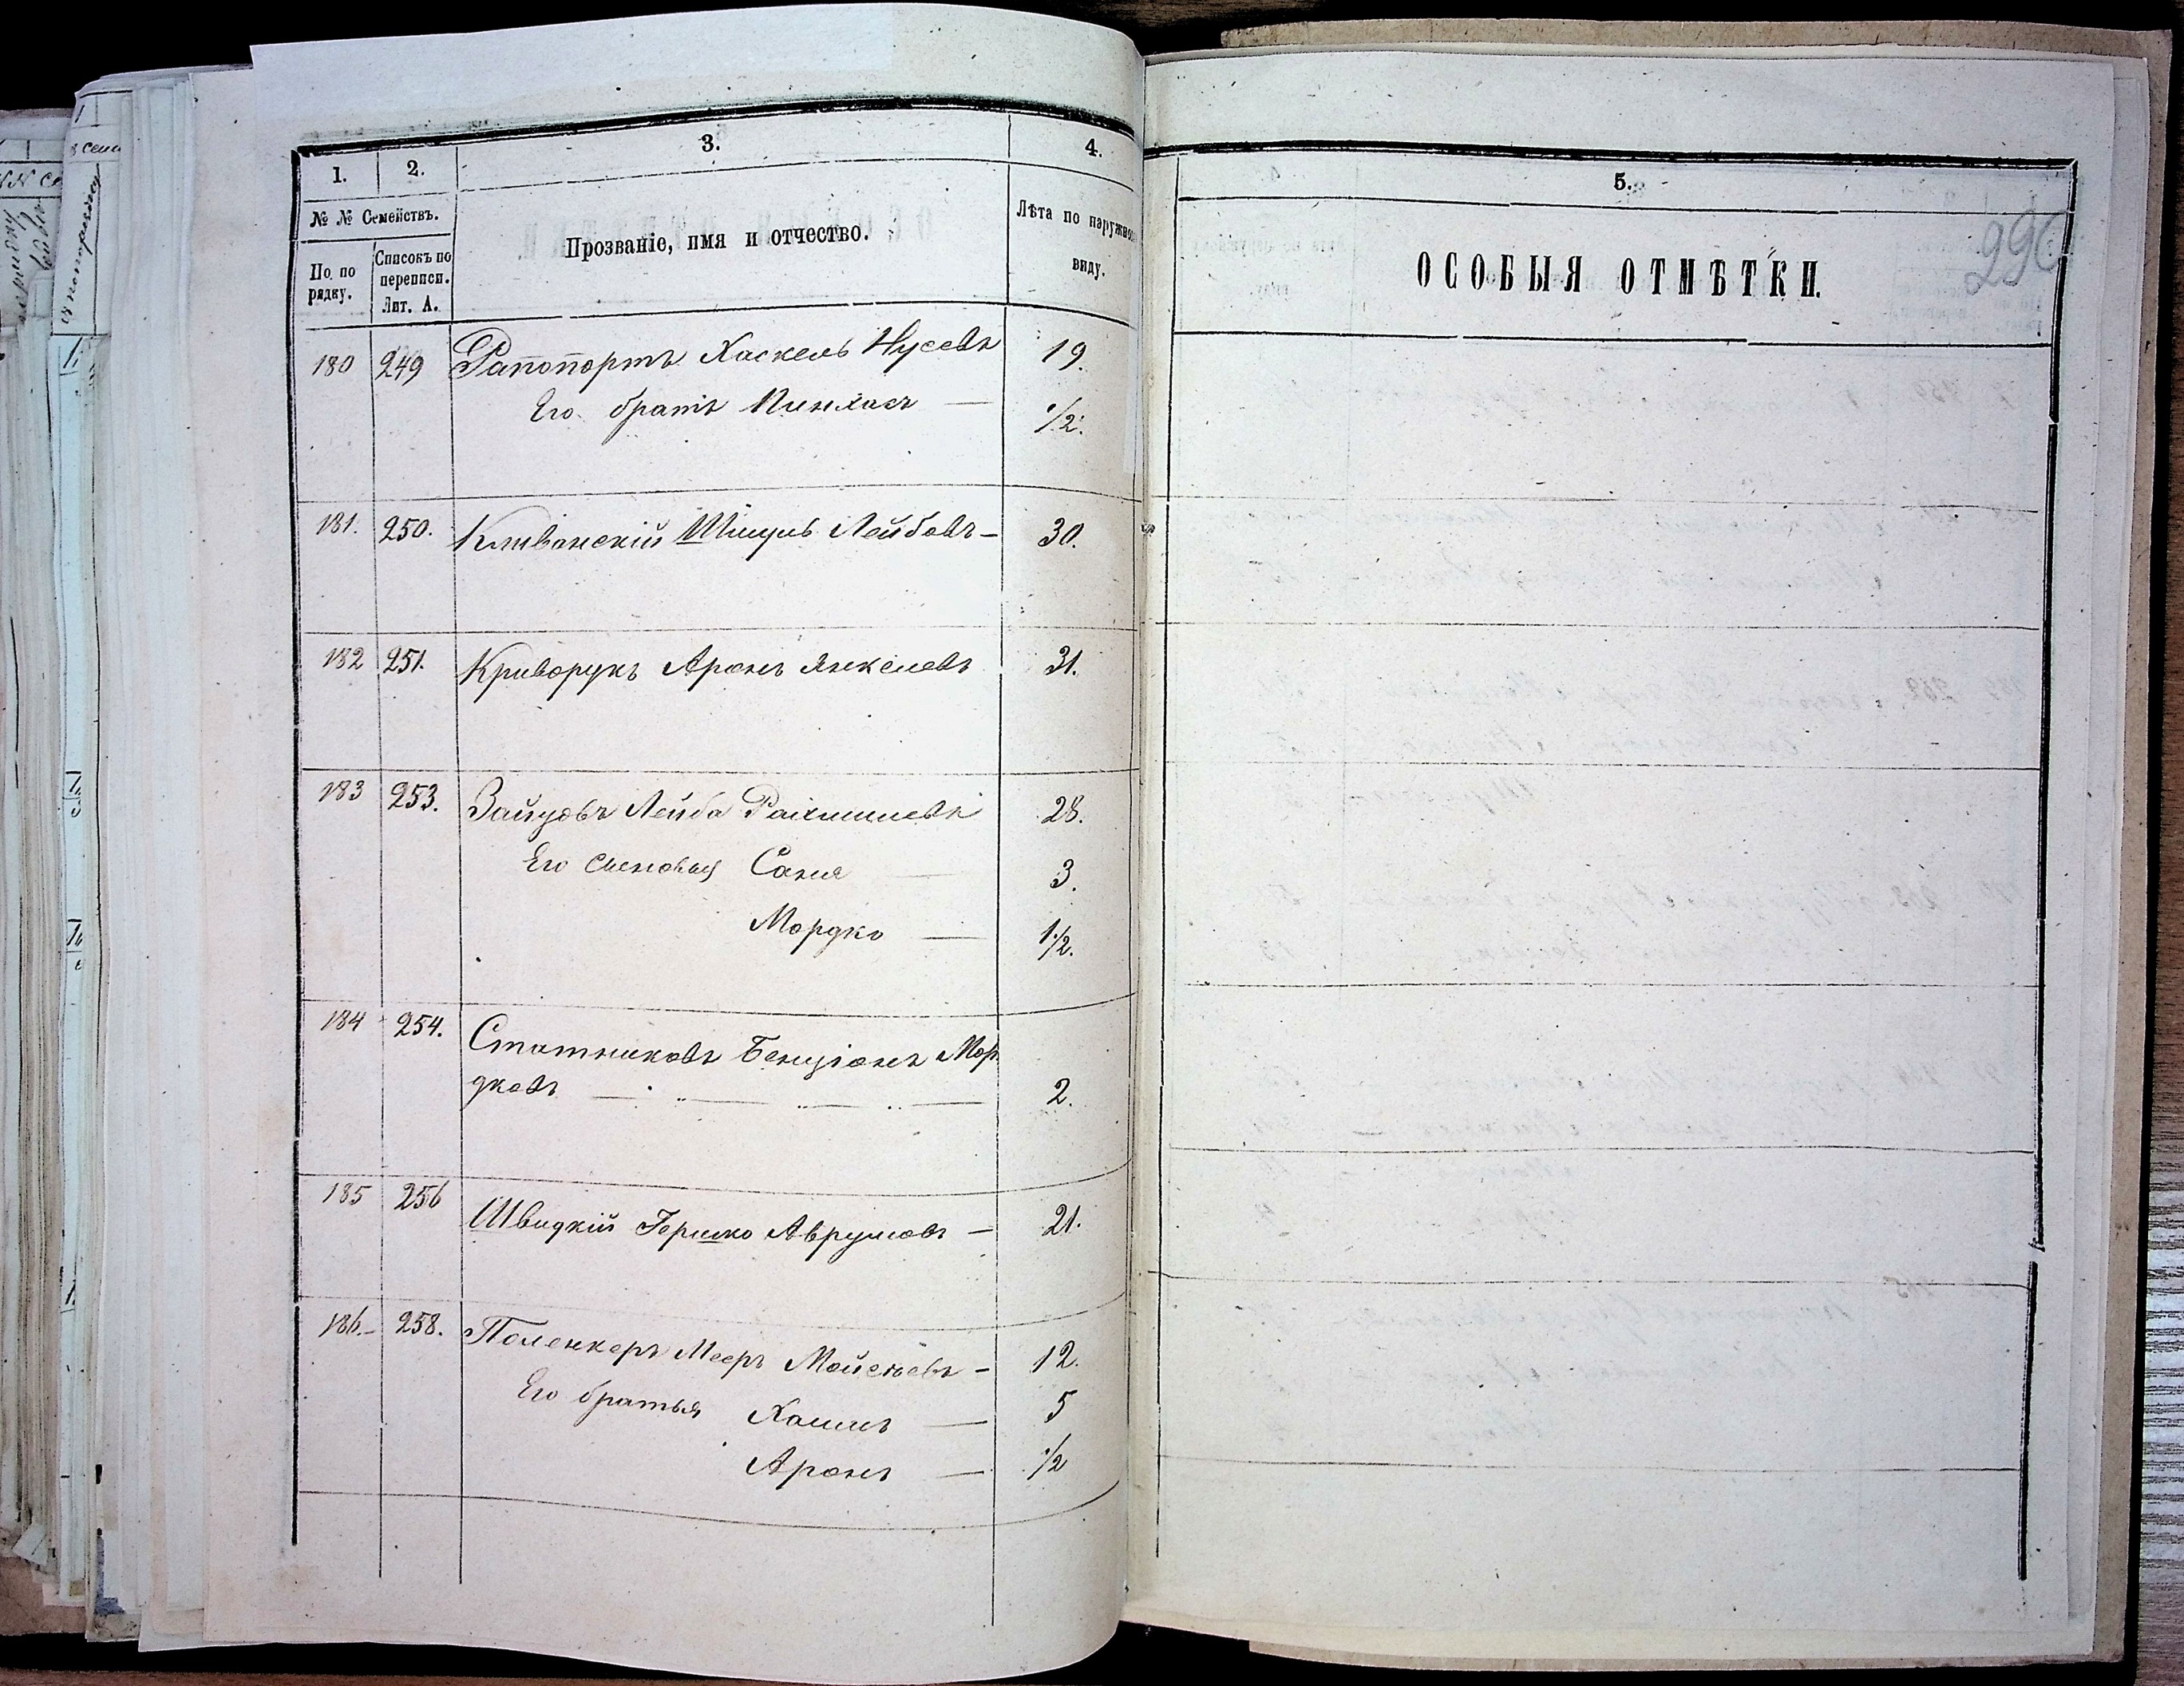 1.
2.
3.
4.
№ № Семействъ.
По по
рядку.
Списокъ по
переписи.
Лит. А.
Прозваніе, имя и отчество.
Лѣта по наружно
виду.
180 249 Рапопортъ Хаскель Нусевъ 19.
Его братъ Пинхасъ — 1/2.
181. 250. Кливанскій Шмуль Лейбовъ — 30.
182 251. Криворукъ Аронъ Янкелевъ 31.
183 253. Зайцовъ Лейба Рахмилевъ 28.
Его сыновья Саня — 3.
Мордко — 1 1/2.
184 254. Статниковъ Бенціонъ Мор
дковъ — 2.
185 256 Швидкій Гершко Аврумовъ — 21.
186. 258. Поленкеръ Мееръ Мойсеевъ — 12.
Его братья Хаимъ — 5
Аронъ — 1/2
5.
ОСОБЫЯ ОТМѢТКИ.
296